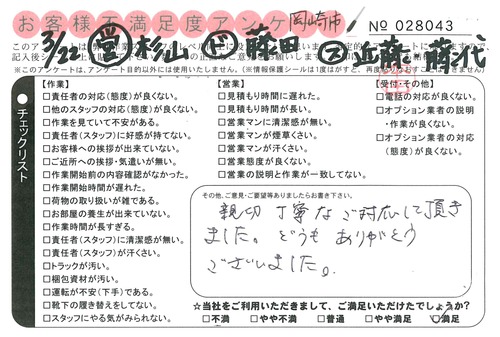 お客様不満足度アンケ
岡崎市
No 028043
3/22 営 杉山 ジ 藤田 ス 近藤 蘭代
※このアンケートは、アンケート目的以外には使用いたしません。(※情報保護シールは1度がはすと、再度
チェックリスト
【作業】
□責任者の対応(態度)が良くない。
□他のスタッフの対応(態度)が良くない。
□作業を見ていて不安がある。
□責任者(スタッフ)に好感が持てない。
□お客様への挨拶が出来ていない。
□ご近所への挨拶・気遣いが無い。
□作業開始前の内容確認がなかった。
□作業開始時間が遅れた。
□荷物の取り扱いが雑である。
□お部屋の養生が出来ていない。
□作業時間が長すぎる。
□責任者(スタッフ)に清潔感が無い。
□責任者(スタッフ)が汗くさい。
□トラックが汚い。
□梱包資材が汚い。
□運転が不安(下手)である。
□靴下の履き替えをしてない。
□スタッフにやる気がみられない。
【営業】
□見積もり時間に遅れた。
□見積もり時間が長い。
□営業マンに清潔感が無い。
□営業マンが煙草くさい。
□営業マンが汗くさい。
□営業態度が良くない。
□営業の説明と作業が一致してない。
【受付・その他】
□電話の対応が良くない。
□オプション業者の説明
・作業が良くない。
□オプション業者の対応
(態度)が良くない。
その他、ご意見・ご要望等ありましたらお書き下さい。
親切 丁寧な ご対応して頂き
ました。どうも ありがとう
ございました。
☆当社をご利用いただきまして、ご満足いただけたでしょうか?
□不満 □やや不満 □普通 □やや満足 □満足